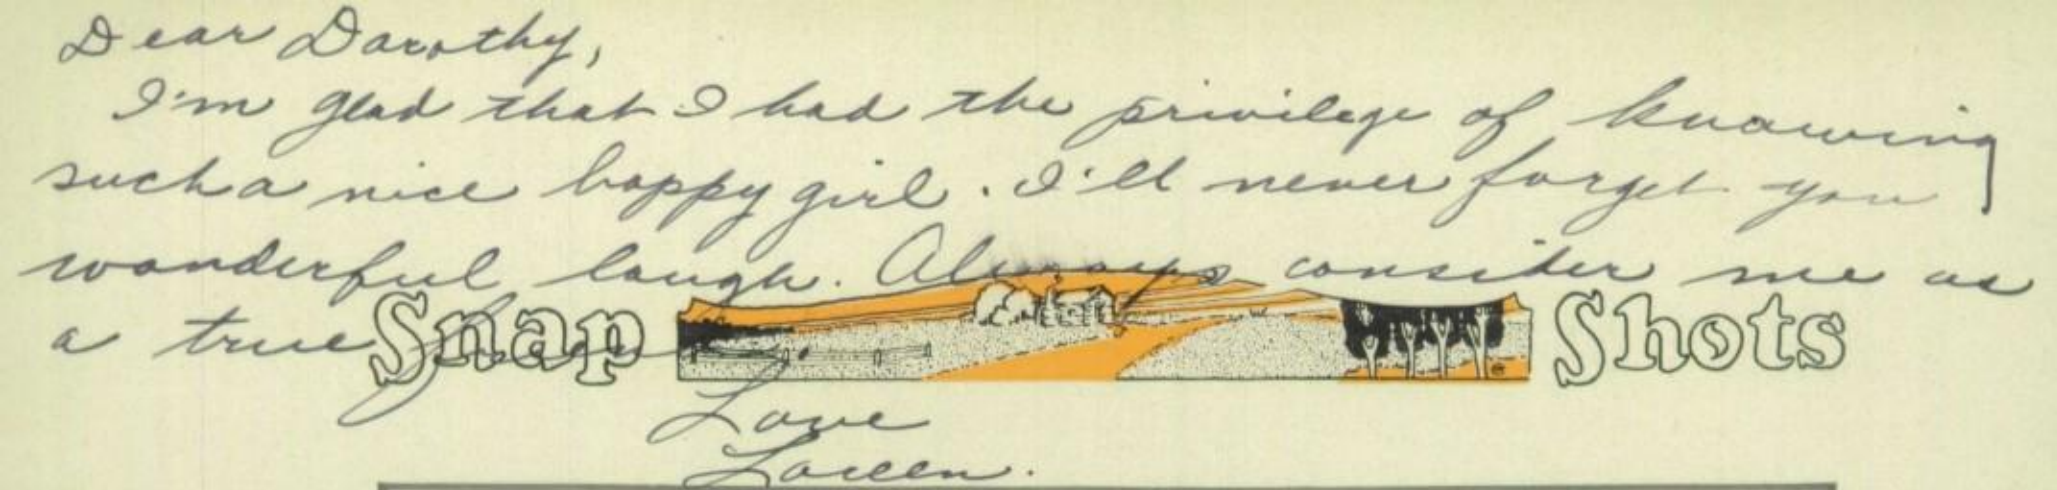 Dear Dorothy,
I'm glad that I had the privilege of knowing
such a nice happy girl. I'll never forget you
wonderful laugh. Always consider me as
a true friend.
Snap Shots
Love
Loreen.